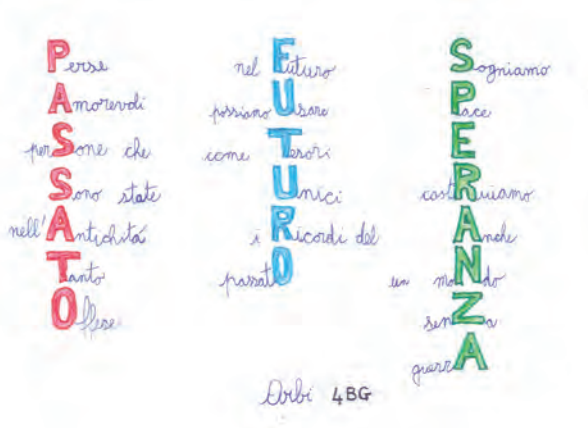 Perse
Amorevoli
perSone che
Sono state
nell'Antichità
Tanto
Offese
nel Futuro
possiamo Usare
come Tesori
Unici
i Ricordi del
passatO
Sogniamo
Pace
E
costRuiamo
Anche
un moNdo
senZa
guerrA
Orbi 4BG